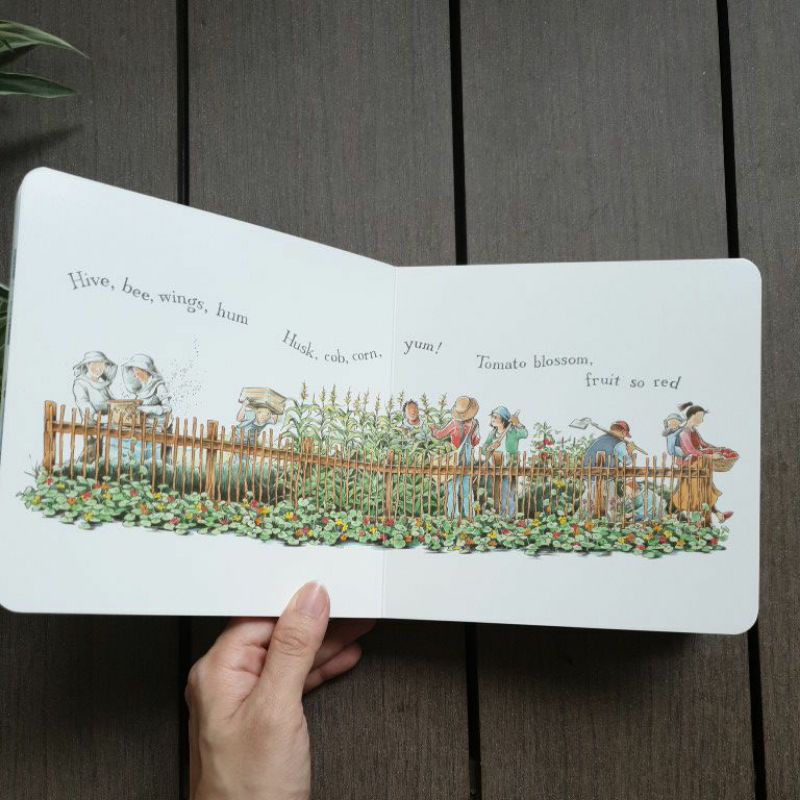 Hive, bee, wings, hum
Husk, cob, corn, yum!
Tomato blossom,
fruit so red